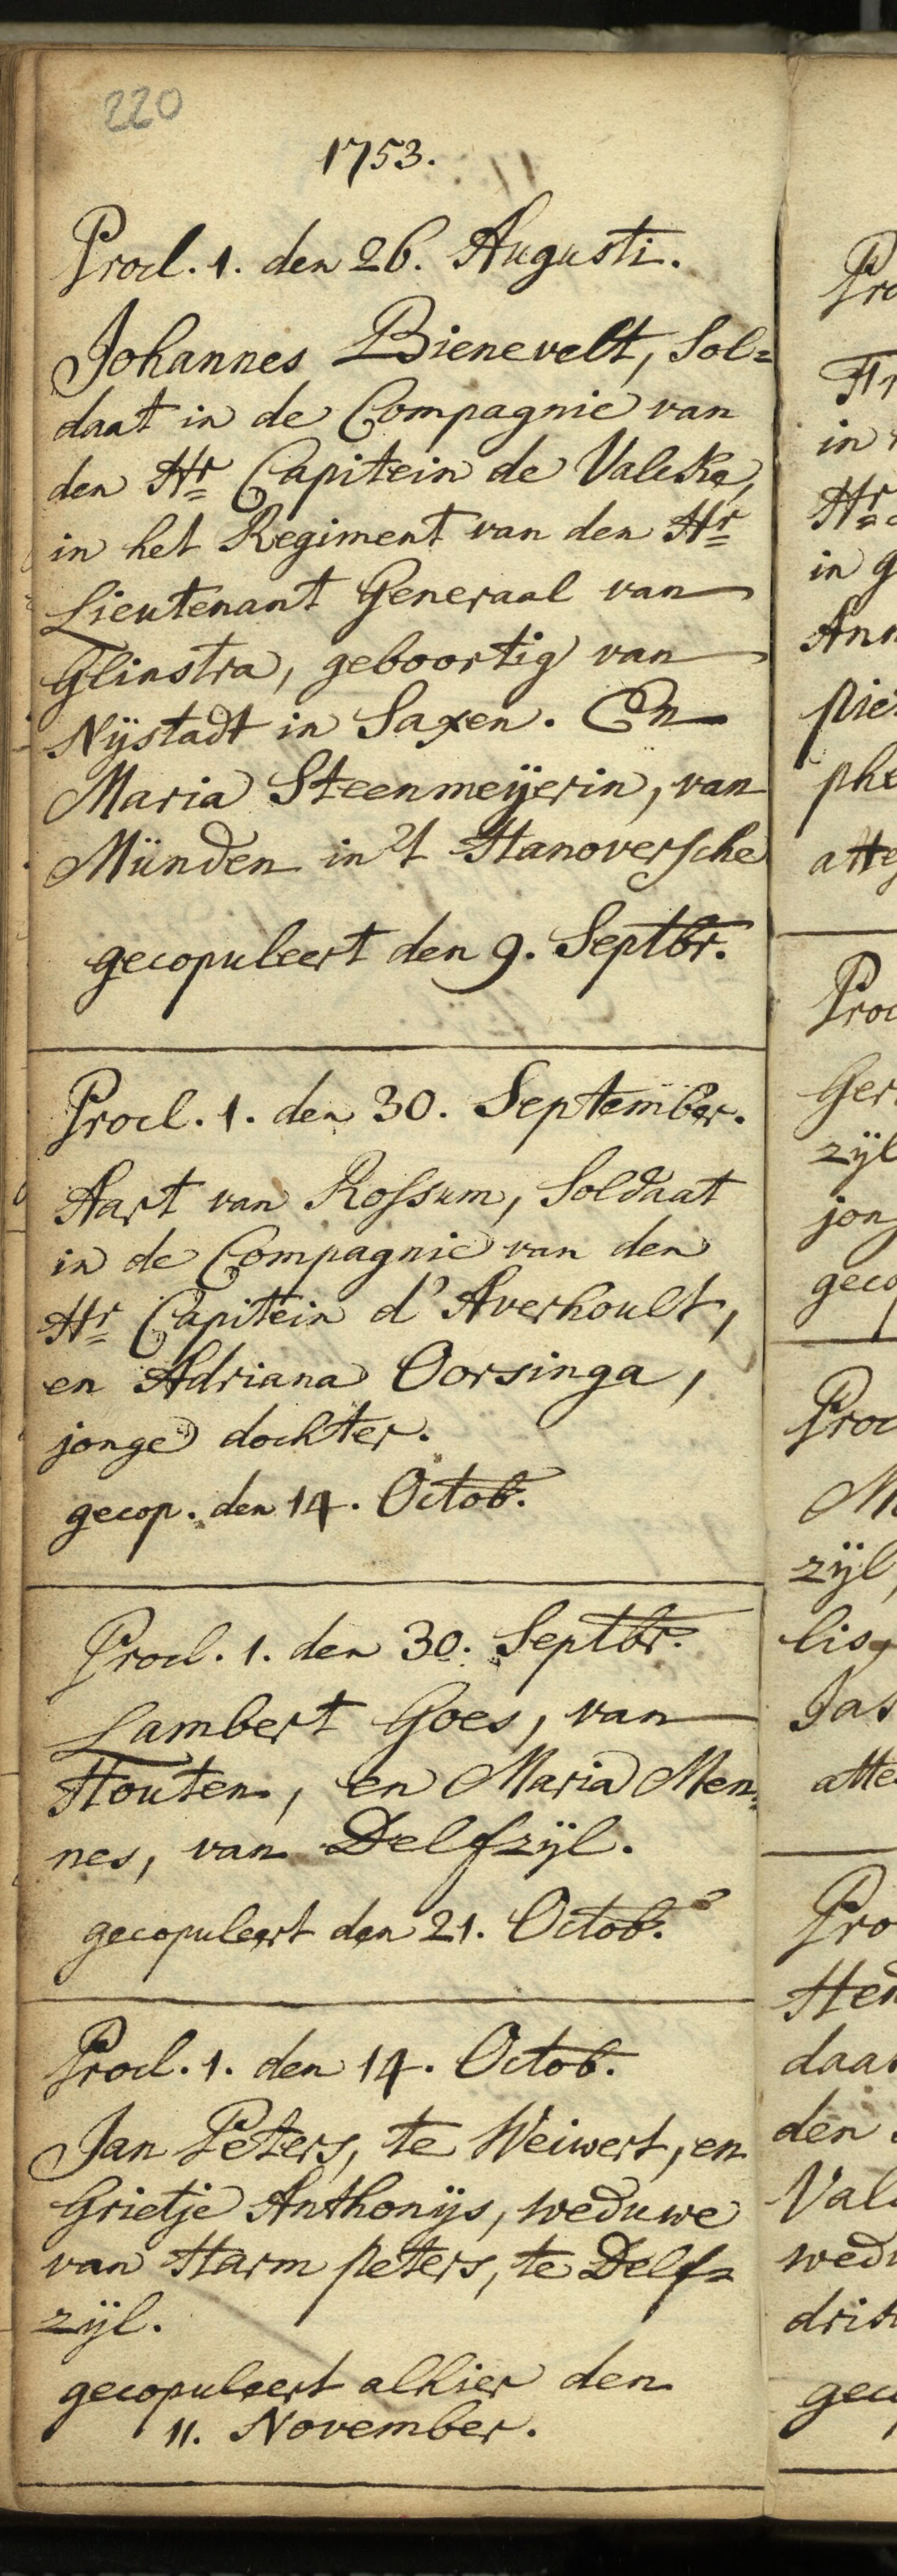 220
1753.
Procl. 1. den 26. Augusti.
Johannes Bienevelt, Sol=
daat in de Compagnie van
den Hr Capitein de Valcke,
in het Regiment van den Hr
Lieutenant Generaal van
Glinstra, geboortig van
Nÿstadt in Saxen. En
Maria Steenmeÿerin, van
Münden in 't Hanoversche
gecopuleert den 9. Septbr.
Procl. 1. den 30. September.
Aart van Rossum, Soldaat
in de Compagnie van den
Hr Capitein d'Averhoult,
en Adriana Oorsinga,
jonge dochter.
gecop. den 14. Octob.
Procl. 1. den 30. Septbr.
Lambert Goes, van
Houten, en Maria Men=
nes, van Delfzÿl.
gecopuleert den 21. Octob.
Procl. 1. den 14. Octob.
Jan Peters, te Weiwert, en
Grietje Anthonÿs, weduwe
van Harm peters, te Delf=
zÿl.
gecopuleert alhier den
11. November.
in
Hr
in g
zÿl
jon
geco
zÿl,
lis,
Jas
atte
daa
den
wedu